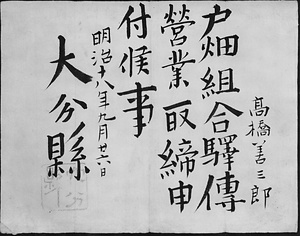 高橋善三郎
戸畑組合驛傳
營業取締申
付候事
明治十八年九月廿六日
大分縣